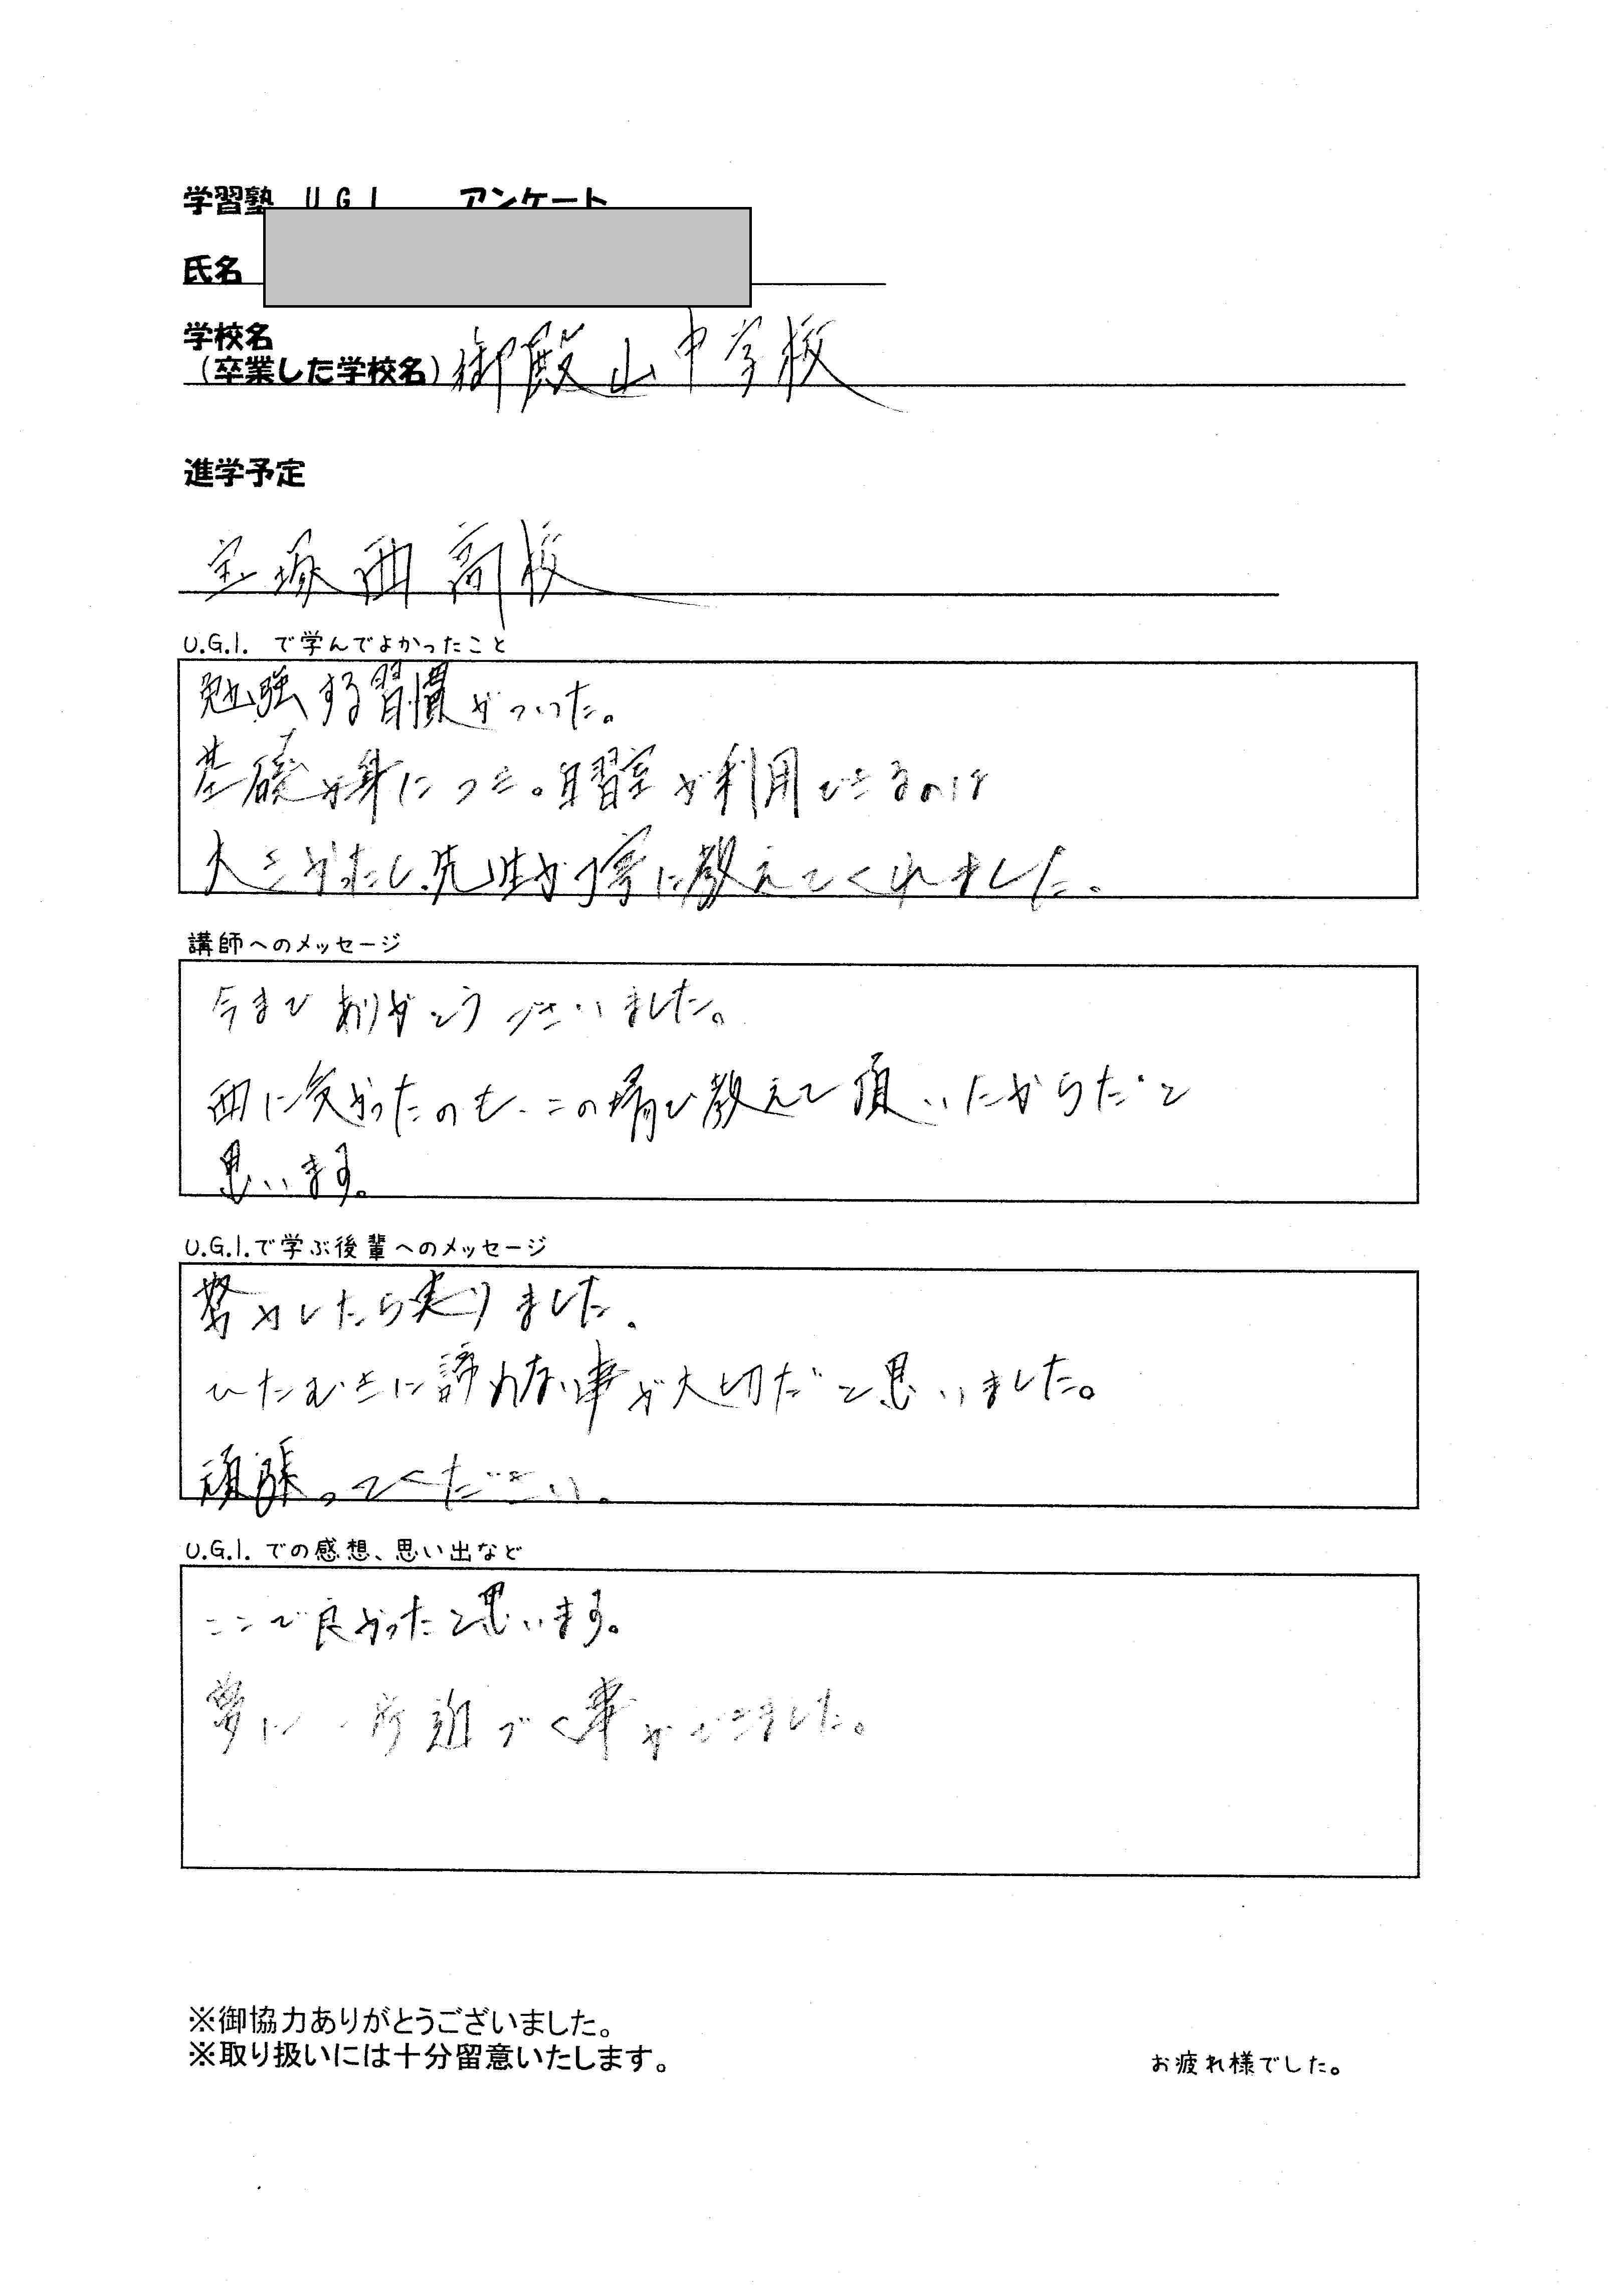 学習塾 U.G.I. アンケート
氏名
学校名
(卒業した学校名) 御殿山中学校
進学予定
宝塚西高校
U.G.I. で学んでよかったこと
勉強する習慣がついた。
基礎が身につき。自習室が利用できるのは
大きかったし、先生が丁寧に教えてくれました。
講師へのメッセージ
今までありがとうございました。
西に受かったのも、この塾で教えて頂いたからだと
思います。
U.G.I.で学ぶ後輩へのメッセージ
努力したら実りました。
ひたむきに諦めない事が大切だと思いました。
頑張ってください。
U.G.I. での感想、思い出など
ここで良かったと思います。
夢に一歩近づく事ができました。
※御協力ありがとうございました。
※取り扱いには十分留意いたします。
お疲れ様でした。